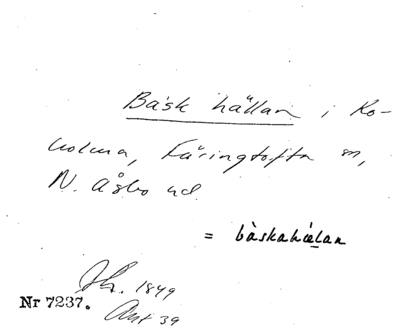 Bàsk hällan i Ko-
holma, Färingtofta sn,
N. Åsbo hd
= bàskahǽlan
Sk. 1849
Nr 7237.
Ant 39